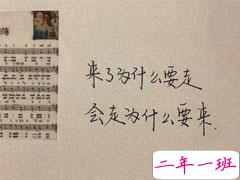 来了为什么要走
会走为什么要来.
二年一班